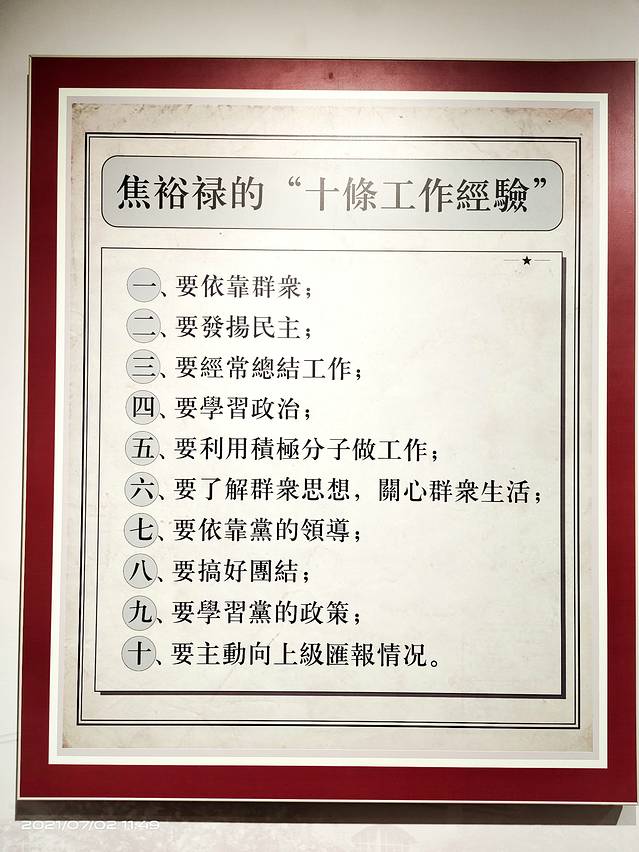 焦裕禄的“十條工作經驗”
一、要依靠群衆；
二、要發揚民主；
三、要經常總結工作；
四、要學習政治；
五、要利用積極分子做工作；
六、要了解群衆思想，關心群衆生活；
七、要依靠黨的領導；
八、要搞好團結；
九、要學習黨的政策；
十、要主動向上級匯報情况。
2021/07/02 11:49